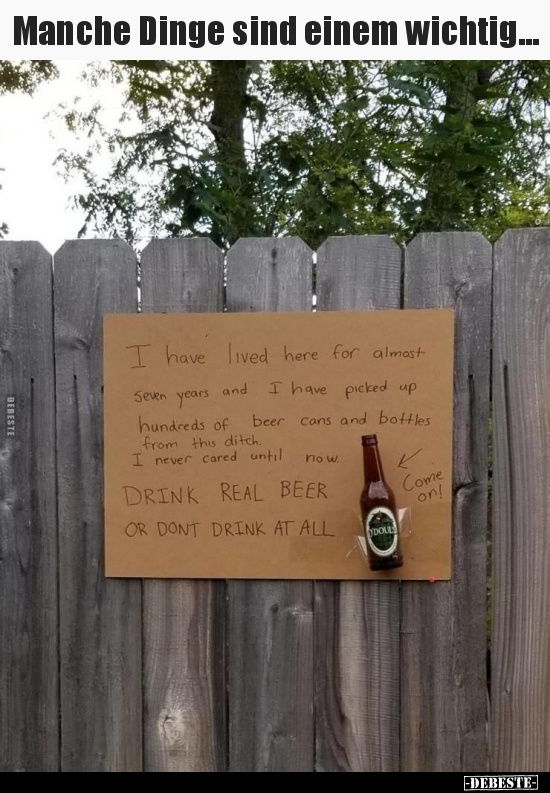 Manche Dinge sind einem wichtig...
I have lived here for almost
seven years and I have picked up
hundreds of beer cans and bottles
from this ditch.
I never cared until now.
Come
on!
DRINK REAL BEER
OR DONT DRINK AT ALL
YDOUL
DEBESTE
-DEBESTE-